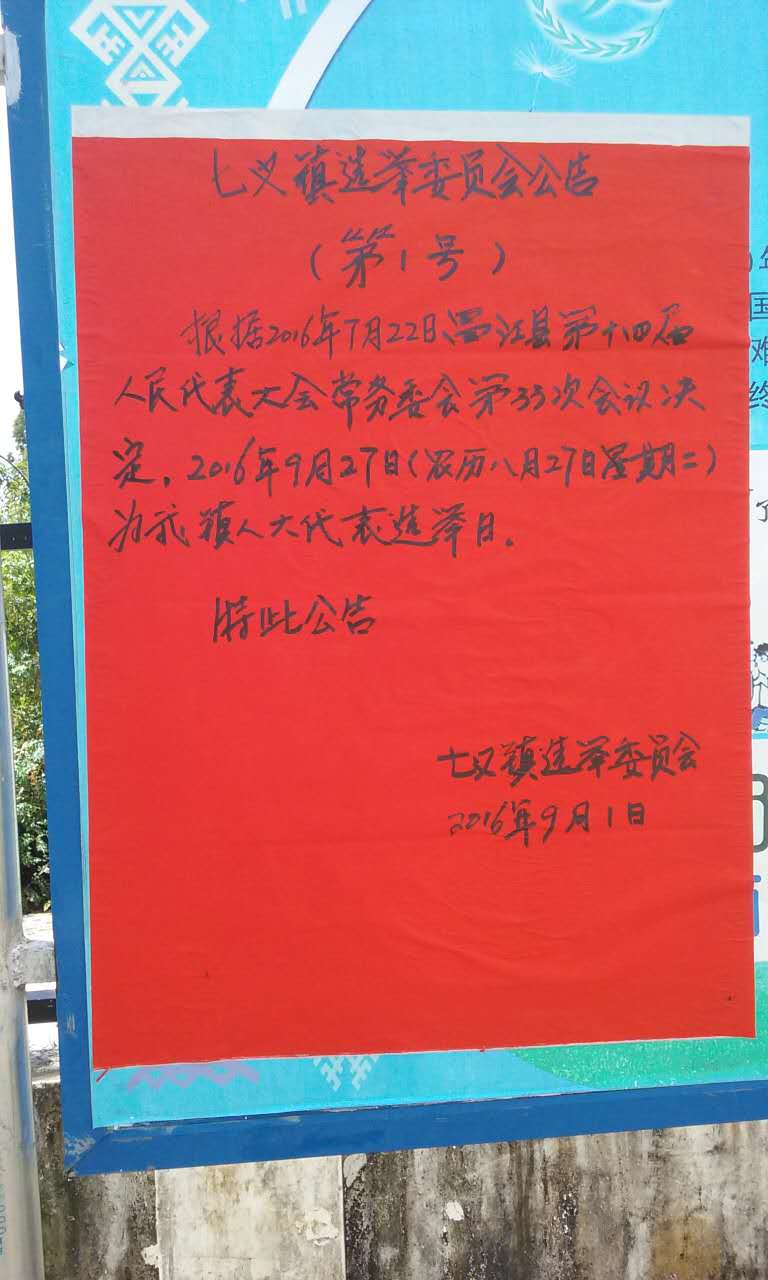 七义镇选举委员会公告
（第1号）
根据2016年7月22日昌江县第十四届
人民代表大会常务委会第33次会议决
定，2016年9月27日（农历八月27日星期二）
为我镇人大代表选举日。
特此公告
七义镇选举委员会
2016年9月1日
国
难
终
了